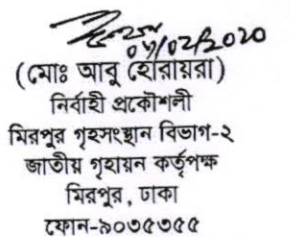 ০৬/০২/২০২০
(মোঃ আবু হোরায়রা)
নির্বাহী প্রকৌশলী
মিরপুর গৃহসংস্থান বিভাগ-২
জাতীয় গৃহায়ন কর্তৃপক্ষ
মিরপুর, ঢাকা
ফোন-৯০৩৫৩৫৫